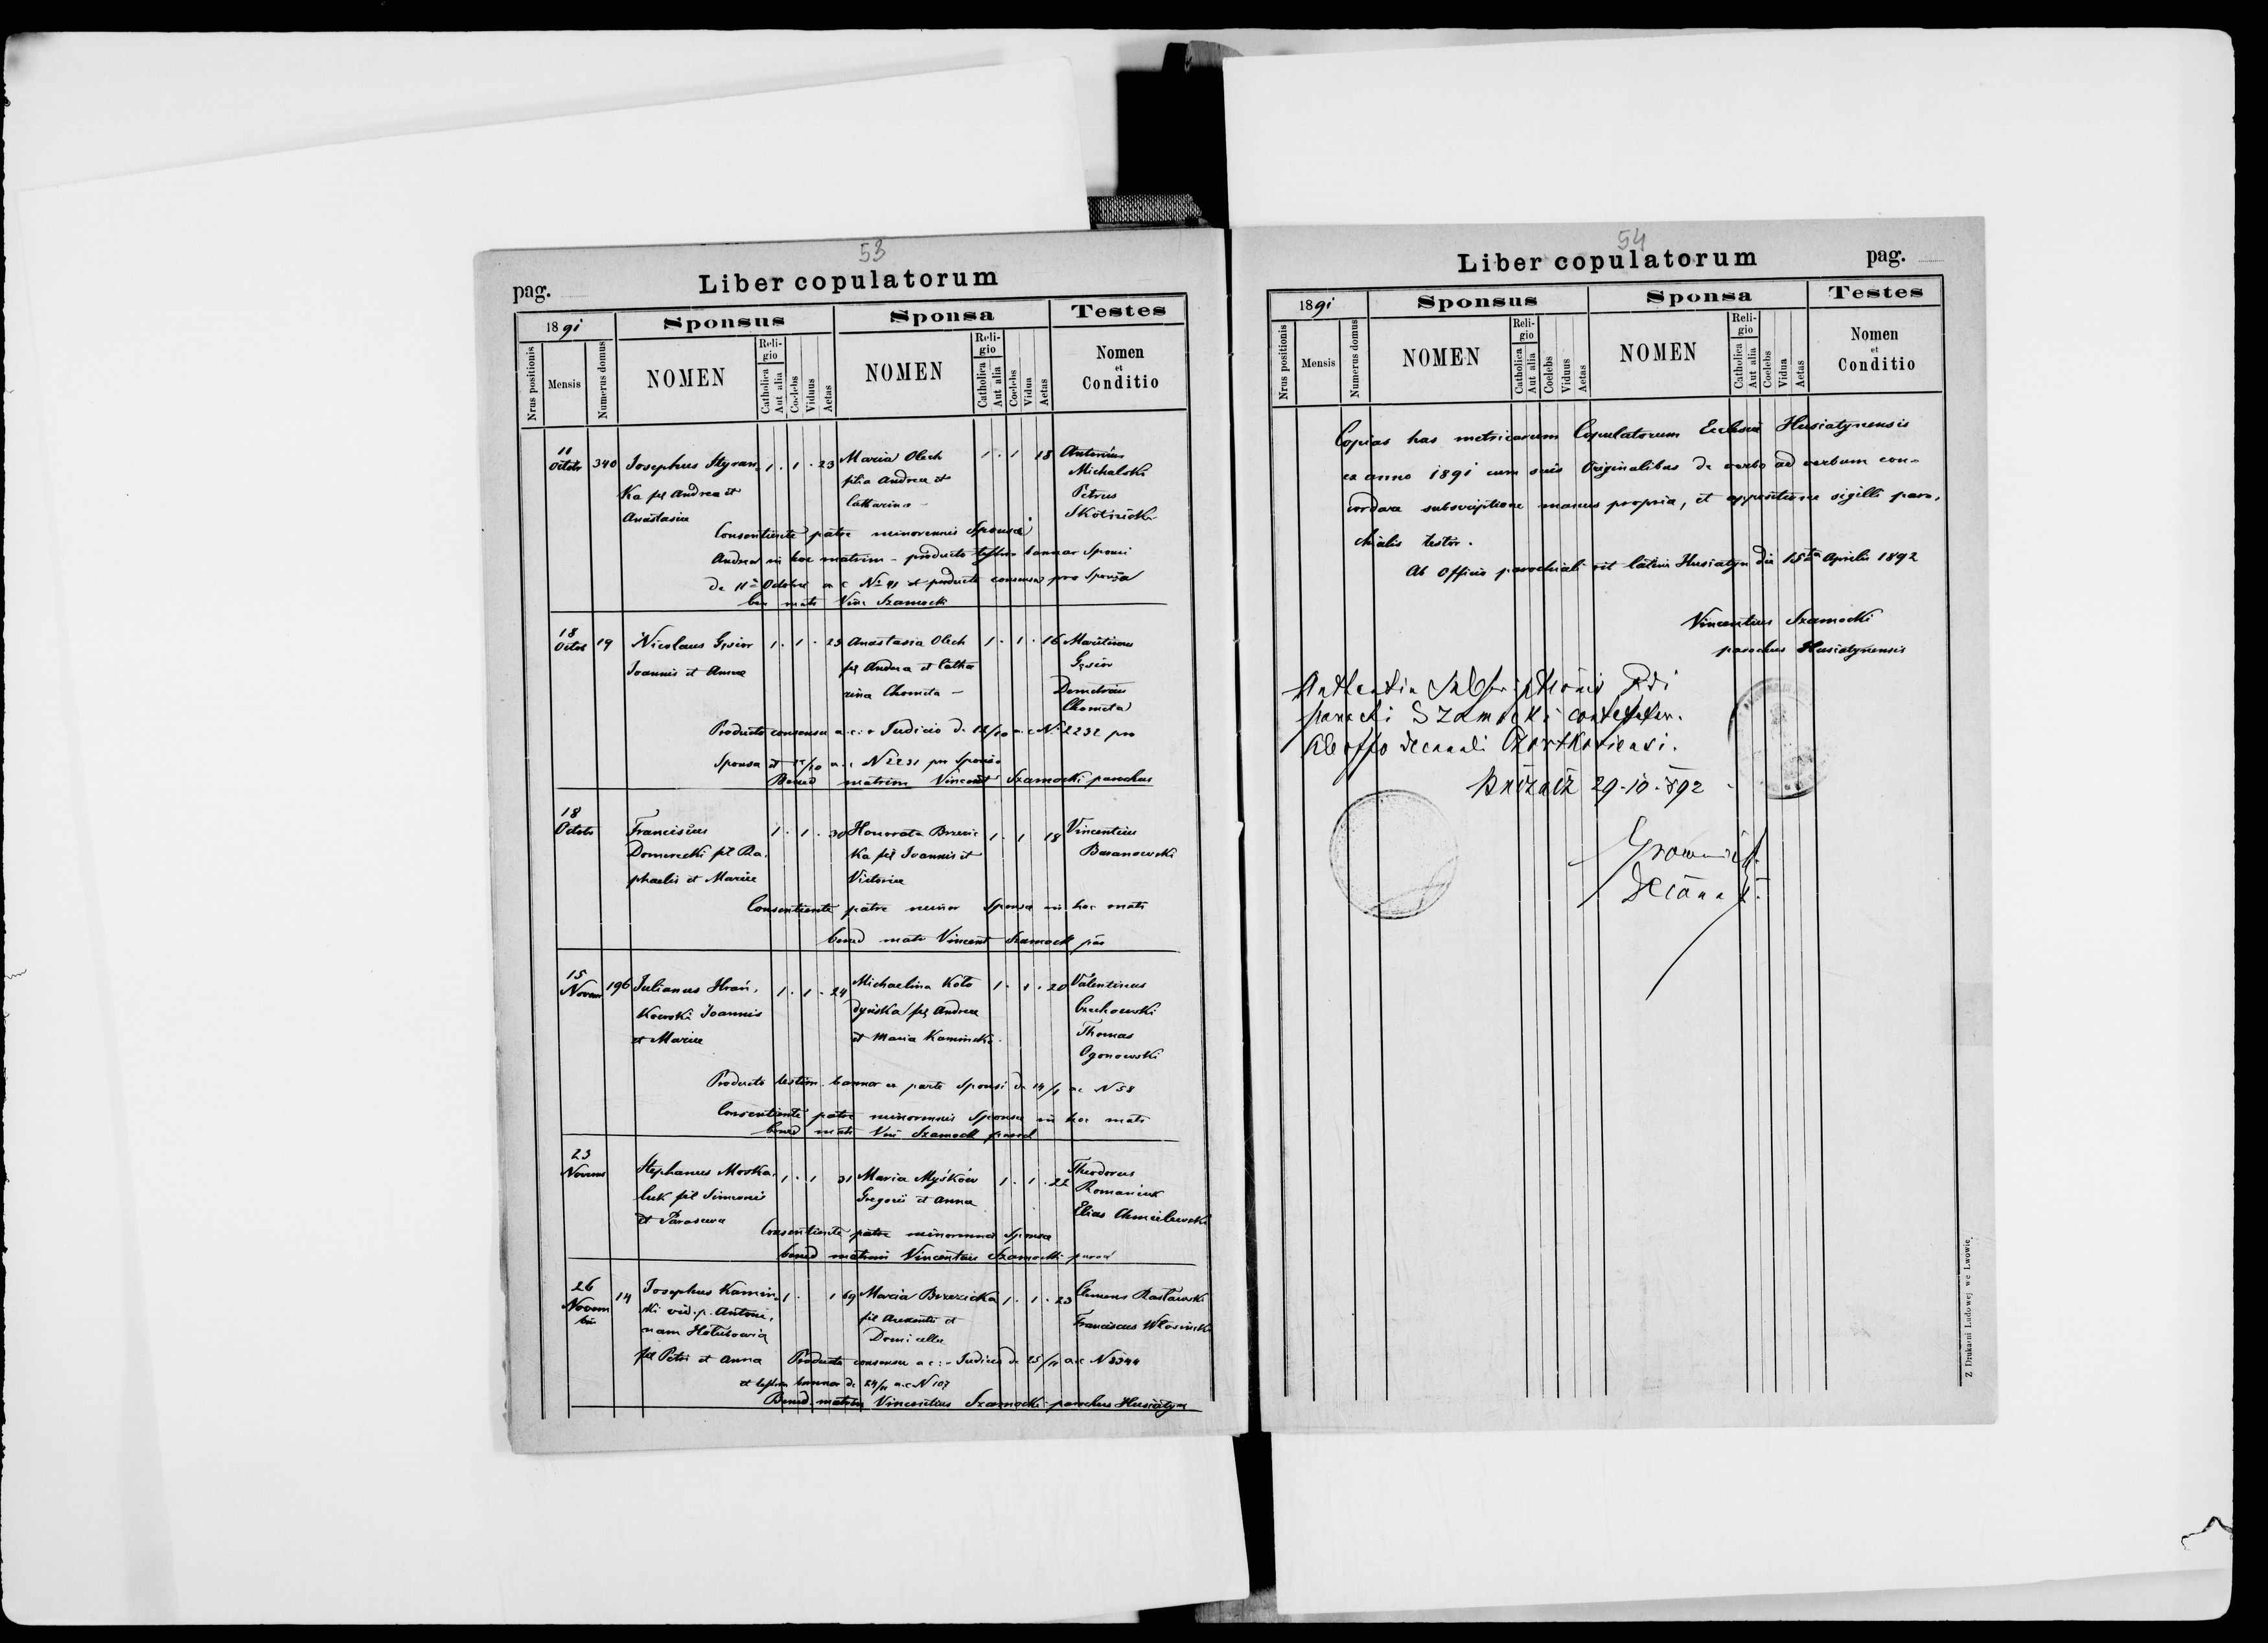 53
pag.
Liber copulatorum
1891
Sponsus
Sponsa
Testes
Nrus positionis
Mensis
Numerus domus
NOMEN
Religio
Catholica
Aut alia
Coelebs
Viduus
Aetas
NOMEN
Religio
Catholica
Aut alia
Coelebs
Vidua
Aetas
Nomen
et
Conditio
11
Octobr 340 Josephus Styran 1 . 1 . 23 Maria Olech 1 . 1 18 Antonius
ka fil Andrea et filia Andrea et Michalski
Anastasia Catharina - Petrus
Consentiente patre minorennis Sponsa
Andrea in hoc matrim - producto bannor Sponsi
de 11 Octobre a c N 91 et producto consensu pro Sponsa
ben matr Vinc Szamocki
18
Octob 19 Nicolaus Gąsior 1 . 1 . 23 Anastasia Olech 1 . 1 . 16 Martinus
Joannis et Annae fil Andrea et Catha Gąsior
rina Chometa - Demetrius
Chometa
Producto consensu a c Judicio d 12/10 a c N 2232 pro
Sponsa et /10 a c N 2231 pro Sponso
Bened matrim Vincent Szamocki parochus
18
Octobr Franciscus 1 . 1 . 30 Honorata Brzezic 1 . 1 18 Vincentius
fil Ra ka fil Joannis et Baranowski
phaelis et Mariae Victoriae
Consentiente patre minor Sponsa in hoc matr
bened matr Vincent Szamock par
15
Novem 196 Julianus Hrań 1 . 1 . 24 Michaelina Koło 1 . 1 . 20 Valentinus
kowski Joannis dyńska fil Andrea Czechowski
et Mariae et Maria Kaminska Thomas
Ogonowski
Producto testim. bannor ex parte Sponsi d 14/11 a c N 58
Consentiente patre minorennis Sponsa in hoc matr
bened matr Vin Szamock paroch
23
Novem Stephanus Moska 1 . 1 31 Maria Myśków 1 . 1 . 22 Theodorus
luk fil Simeonis Gregorii et Anna Romaniuk
et Parascwa Elias Chmielewski
Consentiente patre minorennis Sponsa
bened matrim Vincentius Szamocki paroch
26
Novem 14 Josephus Kamin 1 . 1 69 Maria Brzezicka 1 . 1 . 23 Clemens
bris ski vid. p. Antoni fil et Franciscus
nam Hołubowicz Domicella
fil Petri et Anna Producto consensu a c Judicio de 25/11 a c N 2344
et bannor de 24/11 a c N 107
Bened. matrim Vincentius Szamocki parochus Husiatyn
54
Liber copulatorum
pag.
1891
Sponsus
Sponsa
Testes
Nrus positionis
Mensis
Numerus domus
NOMEN
Religio
Catholica
Aut alia
Coelebs
Viduus
Aetas
NOMEN
Religio
Catholica
Aut alia
Coelebs
Vidua
Aetas
Nomen
et
Conditio
Copias has metricarum Copulatorum Ecclesiae Husiatynensis
ex anno 1891 cum suis Originalibus de verbo ad verbum con-
cordare subscriptione manus propria, et appositione sigilli paro,
chialis testor.
Ab Officio parochiali rit latini Husiatyn die 15ta Aprilis 1892
Vincentius Szamocki
parochus Husiatynensis
parochi Szamocki
Ab offo decanali Czortkoviensi.
29-10-892
Z Drukarni Ludowej we Lwowie.